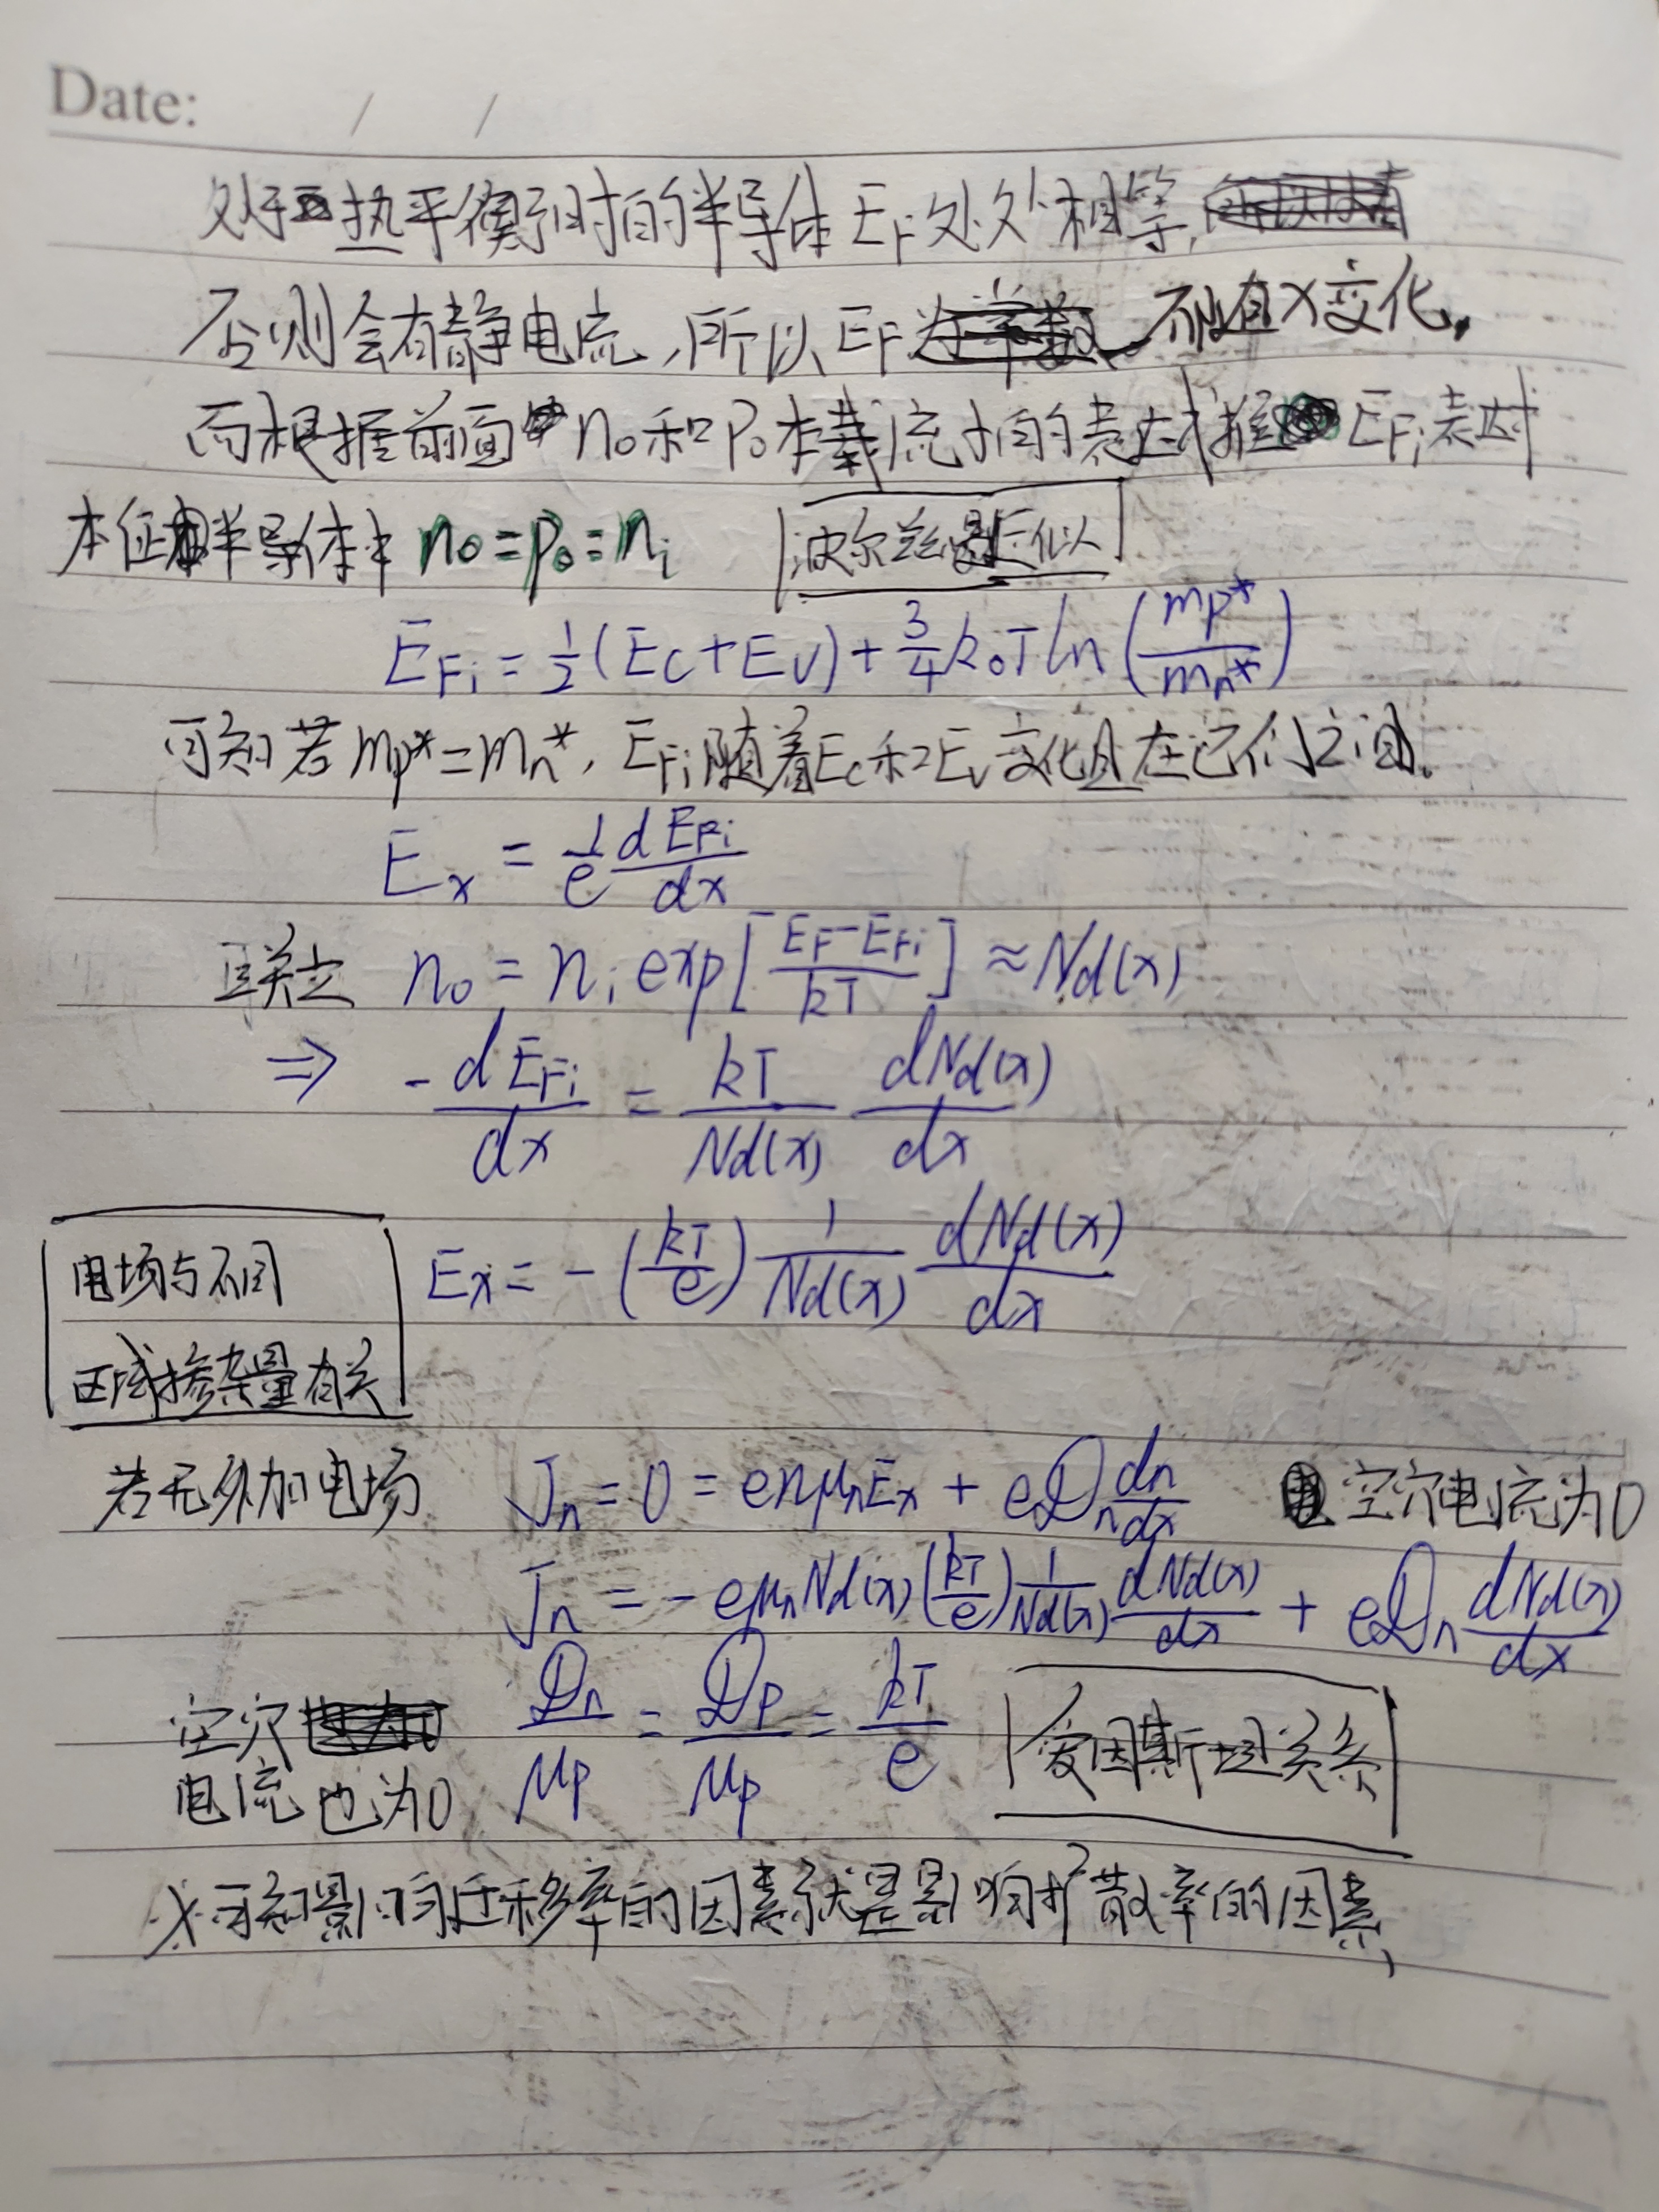 Date: / /
处于热平衡时的半导体 E_F 处处相等,
否则会有静电流,所以 E_F 不随 x 变化。
而根据前面 n₀ 和 p₀ 本载流子的表达式推 E_Fi 表达式
本征半导体中 n₀ = p₀ = n_i 波尔兹曼近似
E_Fi = 1/2 (E_C + E_V) + 3/4 k₀T ln (m_p* / m_n*)
可知若 m_p* = m_n*, E_Fi 随着 E_C 和 E_V 变化且在它们之间。
E_x = 1/e dE_Fi/dx
联立 n₀ = n_i exp[(E_F - E_Fi)/kT] ≈ N_d(x)
⇒ - dE_Fi/dx = kT/N_d(x) dN_d(x)/dx
电场与不同
区域掺杂量有关
E_x = - (kT/e) 1/N_d(x) dN_d(x)/dx
若无外加电场 J_n = 0 = enμ_nE_x + eD_n dn/dx 空穴电流为0
J_n = - eμ_nN_d(x) (kT/e) 1/N_d(x) dN_d(x)/dx + eD_n dN_d(x)/dx
空穴
电流也为0
D_n/μ_p = D_p/μ_p = kT/e 爱因斯坦关系
※可知影响迁移率的因素就是影响扩散率的因素,